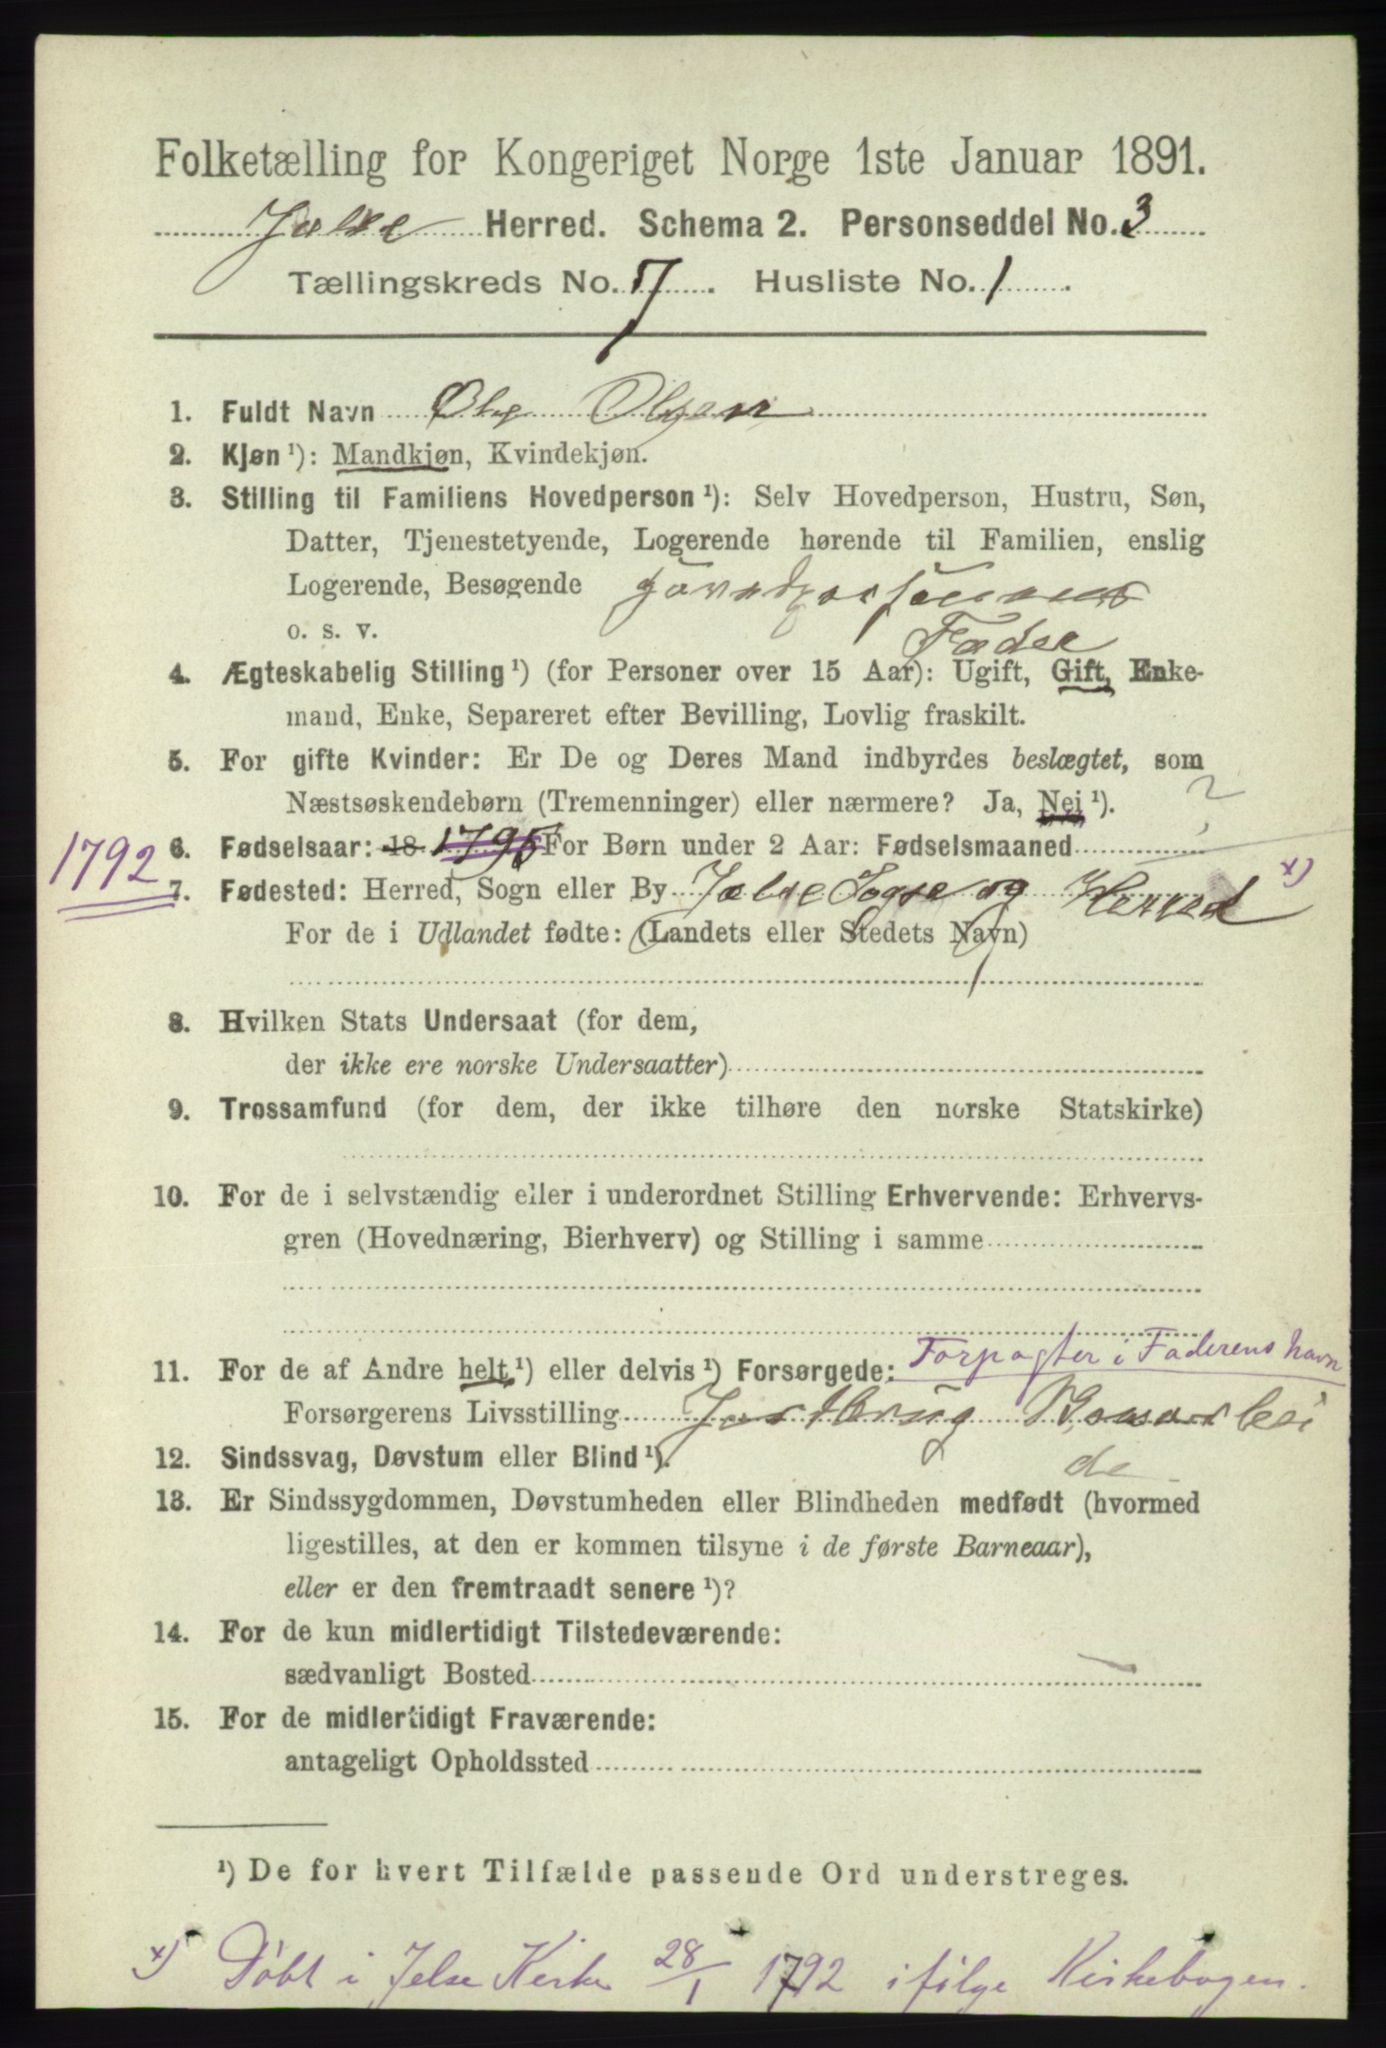 Folketælling for Kongeriget Norge 1ste Januar 1891.
Jælse Herred. Schema 2. Personseddel No. 3
Tællingskreds No. 7. Husliste No. 1.
1. Fuldt Navn Ole Olsen
2. Kjøn ¹): Mandkjøn, Kvindekjøn.
3. Stilling til Familiens Hovedperson ¹): Selv Hovedperson, Hustru, Søn,
Datter, Tjenestetyende, Logerende hørende til Familien, enslig
Logerende, Besøgende
o. s. v. Fader
4. Ægteskabelig Stilling ¹) (for Personer over 15 Aar): Ugift, Gift, Enke-
mand, Enke, Separeret efter Bevilling, Lovlig fraskilt.
5. For gifte Kvinder: Er De og Deres Mand indbyrdes beslægtet, som
Næstsøskendebørn (Tremenninger) eller nærmere? Ja, Nei ¹). ?
1792 6. Fødselsaar: 18 1795 For Børn under 2 Aar: Fødselsmaaned
7. Fødested: Herred, Sogn eller By Jælse Sogn og Herred x)
For de i Udlandet fødte: (Landets eller Stedets Navn)
8. Hvilken Stats Undersaat (for dem,
der ikke ere norske Undersaatter)
9. Trossamfund (for dem, der ikke tilhøre den norske Statskirke)
10. For de i selvstændig eller i underordnet Stilling Erhvervende: Erhvervs-
gren (Hovednæring, Bierhverv) og Stilling i samme
11. For de af Andre helt ¹) eller delvis ¹) Forsørgede: Forpagter i Faderens Navn
Forsørgerens Livsstilling Jordbrug
12. Sindssvag, Døvstum eller Blind ¹). de
13. Er Sindssygdommen, Døvstumheden eller Blindheden medfødt (hvormed
ligestilles, at den er kommen tilsyne i de første Barneaar),
eller er den fremtraadt senere ¹)?
14. For de kun midlertidigt Tilstedeværende:
sædvanligt Bosted
15. For de midlertidigt Fraværende:
antageligt Opholdssted
¹) De for hvert Tilfælde passende Ord understreges.
x) Døbt i Jelse Kirke 28/1 1792 ifølge Kirkebogen.